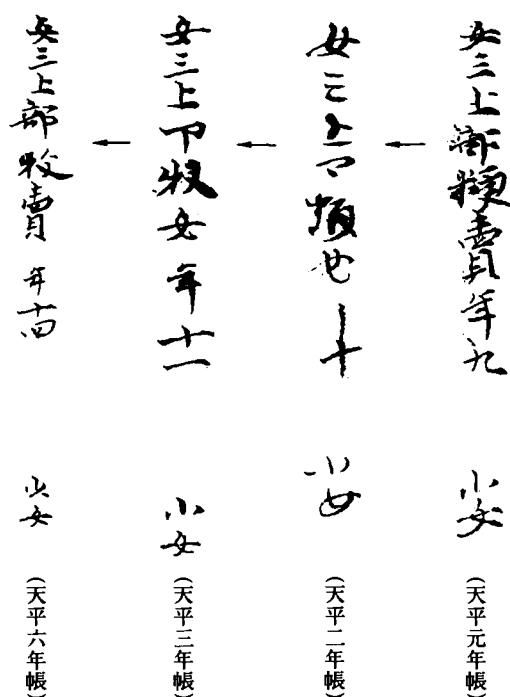 女三上部賣年九 小女 (天平元年帳)
女三上卩 十 小女 (天平二年帳)
女三上卩牧女年十一 小女 (天平三年帳)
女三上部牧賣 年十四 小女 (天平六年帳)